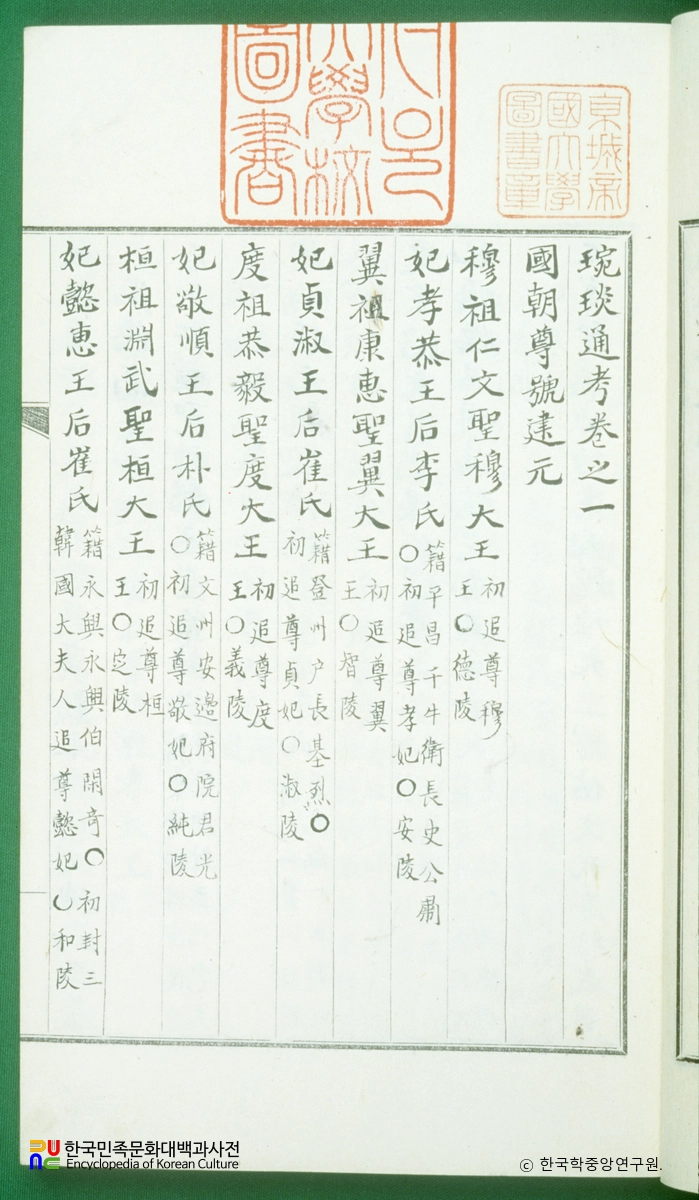 京城帝
國大學
圖書章
大學校
圖書
琬琰通考卷之一
國朝尊號建元
穆祖仁文聖穆大王 初追尊穆
王○德陵
妃孝恭王后李氏 籍平昌千牛衛長史公肅
○初追尊孝妃○安陵
翼祖康惠聖翼大王 初追尊翼
王○智陵
妃貞淑王后崔氏 籍登州戶長基烈○
初追尊貞妃○淑陵
度祖恭毅聖度大王 初追尊度
王○義陵
妃敬順王后朴氏 籍文州安邊府院君光
○初追尊敬妃○純陵
桓祖淵武聖桓大王 初追尊桓
王○定陵
妃懿惠王后崔氏 籍永興永興伯閑奇○初封三
韓國大夫人追尊懿妃○和陵
한국민족문화대백과사전
Encyclopedia of Korean Culture
ⓒ 한국학중앙연구원.